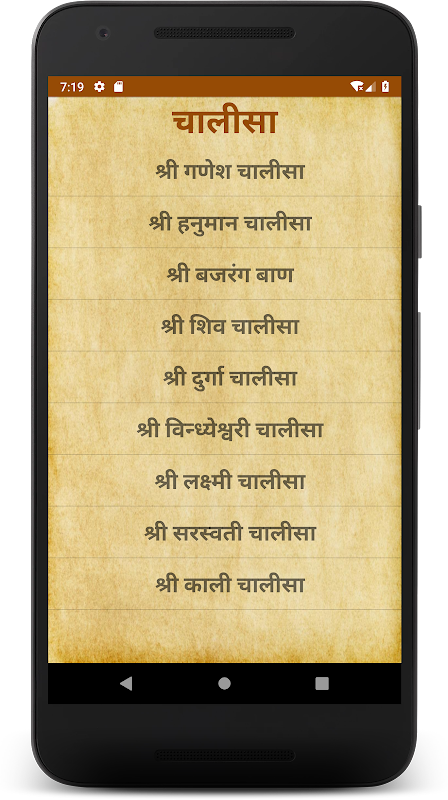 7:19
चालीसा
श्री गणेश चालीसा
श्री हनुमान चालीसा
श्री बजरंग बाण
श्री शिव चालीसा
श्री दुर्गा चालीसा
श्री विन्ध्येश्वरी चालीसा
श्री लक्ष्मी चालीसा
श्री सरस्वती चालीसा
श्री काली चालीसा